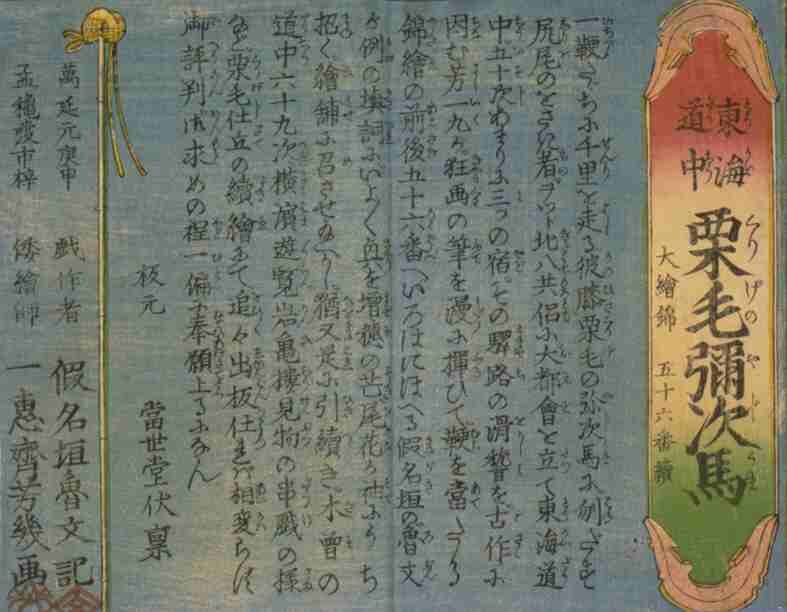 東海道中
栗毛彌次馬
大繪錦 五十六番續
一鞭うちに千里を走る彼膝栗毛の弥次馬に
尻尾の者 北八共侶に大都會を立て東海道
中五十次あまりに三つの宿その驛路の滑稽を古作に
因む芳一九が狂画の筆を漫に揮ひて鞭を當
錦繪の前後五十六番へいろはにほへる假名垣の魯文
が例の填詞にいよく 増穂の芒尾花が袖ふりち
招く繪舗に召させ 猶又是に引續き木曽の
道中六十九次横濱遊覧岩亀樓見物の串戯の
を栗毛仕立の續繪にて追々出板仕 相変らず
御評判御求めの程一偏に奉願上るになん
板元 當世堂伏稟
萬延元庚申 戯作者 假名垣魯文記
孟穐發市梓 倭繪師 一惠齋芳幾画